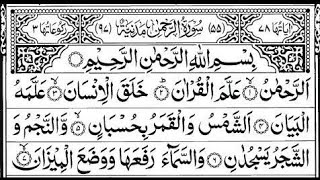 اٰیَاتُهَا ٧٨ (٥٥) سُوْرَةُ الرَّحْمٰنِ مَدَنِیَّةٌ (٩٧) رُكُوْعَاتُهَا ٣
بِسْمِ اللّٰهِ الرَّحْمٰنِ الرَّحِیْمِ
اَلرَّحْمٰنُ ۙ‏﴿۱﴾ عَلَّمَ الْقُرْاٰنَ ؕ‏﴿۲﴾ خَلَقَ الْاِنْسَانَ ۙ‏﴿۳﴾ عَلَّمَهُ
الْبَیَانَ ‏﴿۴﴾ اَلشَّمْسُ وَ الْقَمَرُ بِحُسْبَانٍ ‏﴿۵﴾ وَّ النَّجْمُ وَ
الشَّجَرُ یَسْجُدٰنِ ‏﴿۶﴾ وَ السَّمَآءَ رَفَعَهَا وَ وَضَعَ الْمِیْزَانَ ۙ‏﴿۷﴾